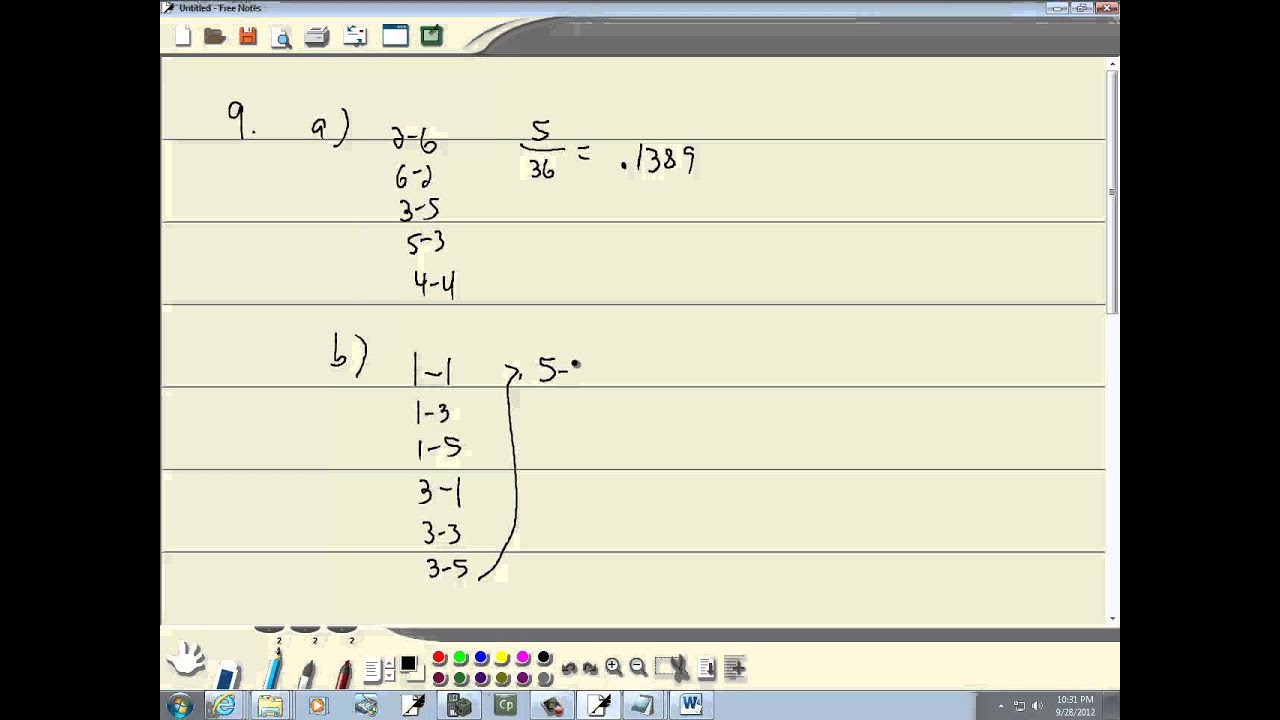 Untitled - Free Notes
9. a) 2-6 5/36 = .1389
6-2
3-5
5-3
4-4
b) 1-1 5-
1-3
1-5
3-1
3-3
3-5
2 2 2
Cp W
10:31 PM
9/28/2012